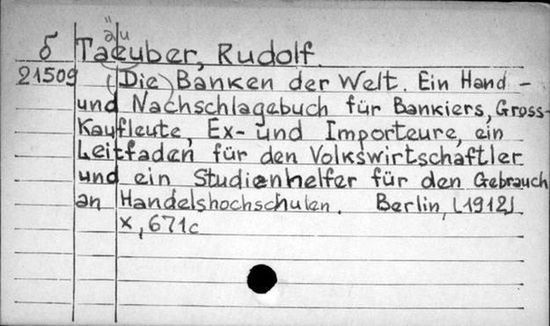 äu
δ Taeuber, Rudolf.
21509 (Die) Banken der Welt. Ein Hand-
und Nachschlagebuch für Bankiers, Gross-
Kaufleute, Ex- und Importeure, ein
Leitfaden für den Volkswirtschaftler
und ein Studienhelfer für den Gebrauch
an Handelshochschulen. Berlin, [1912]
x, 671c